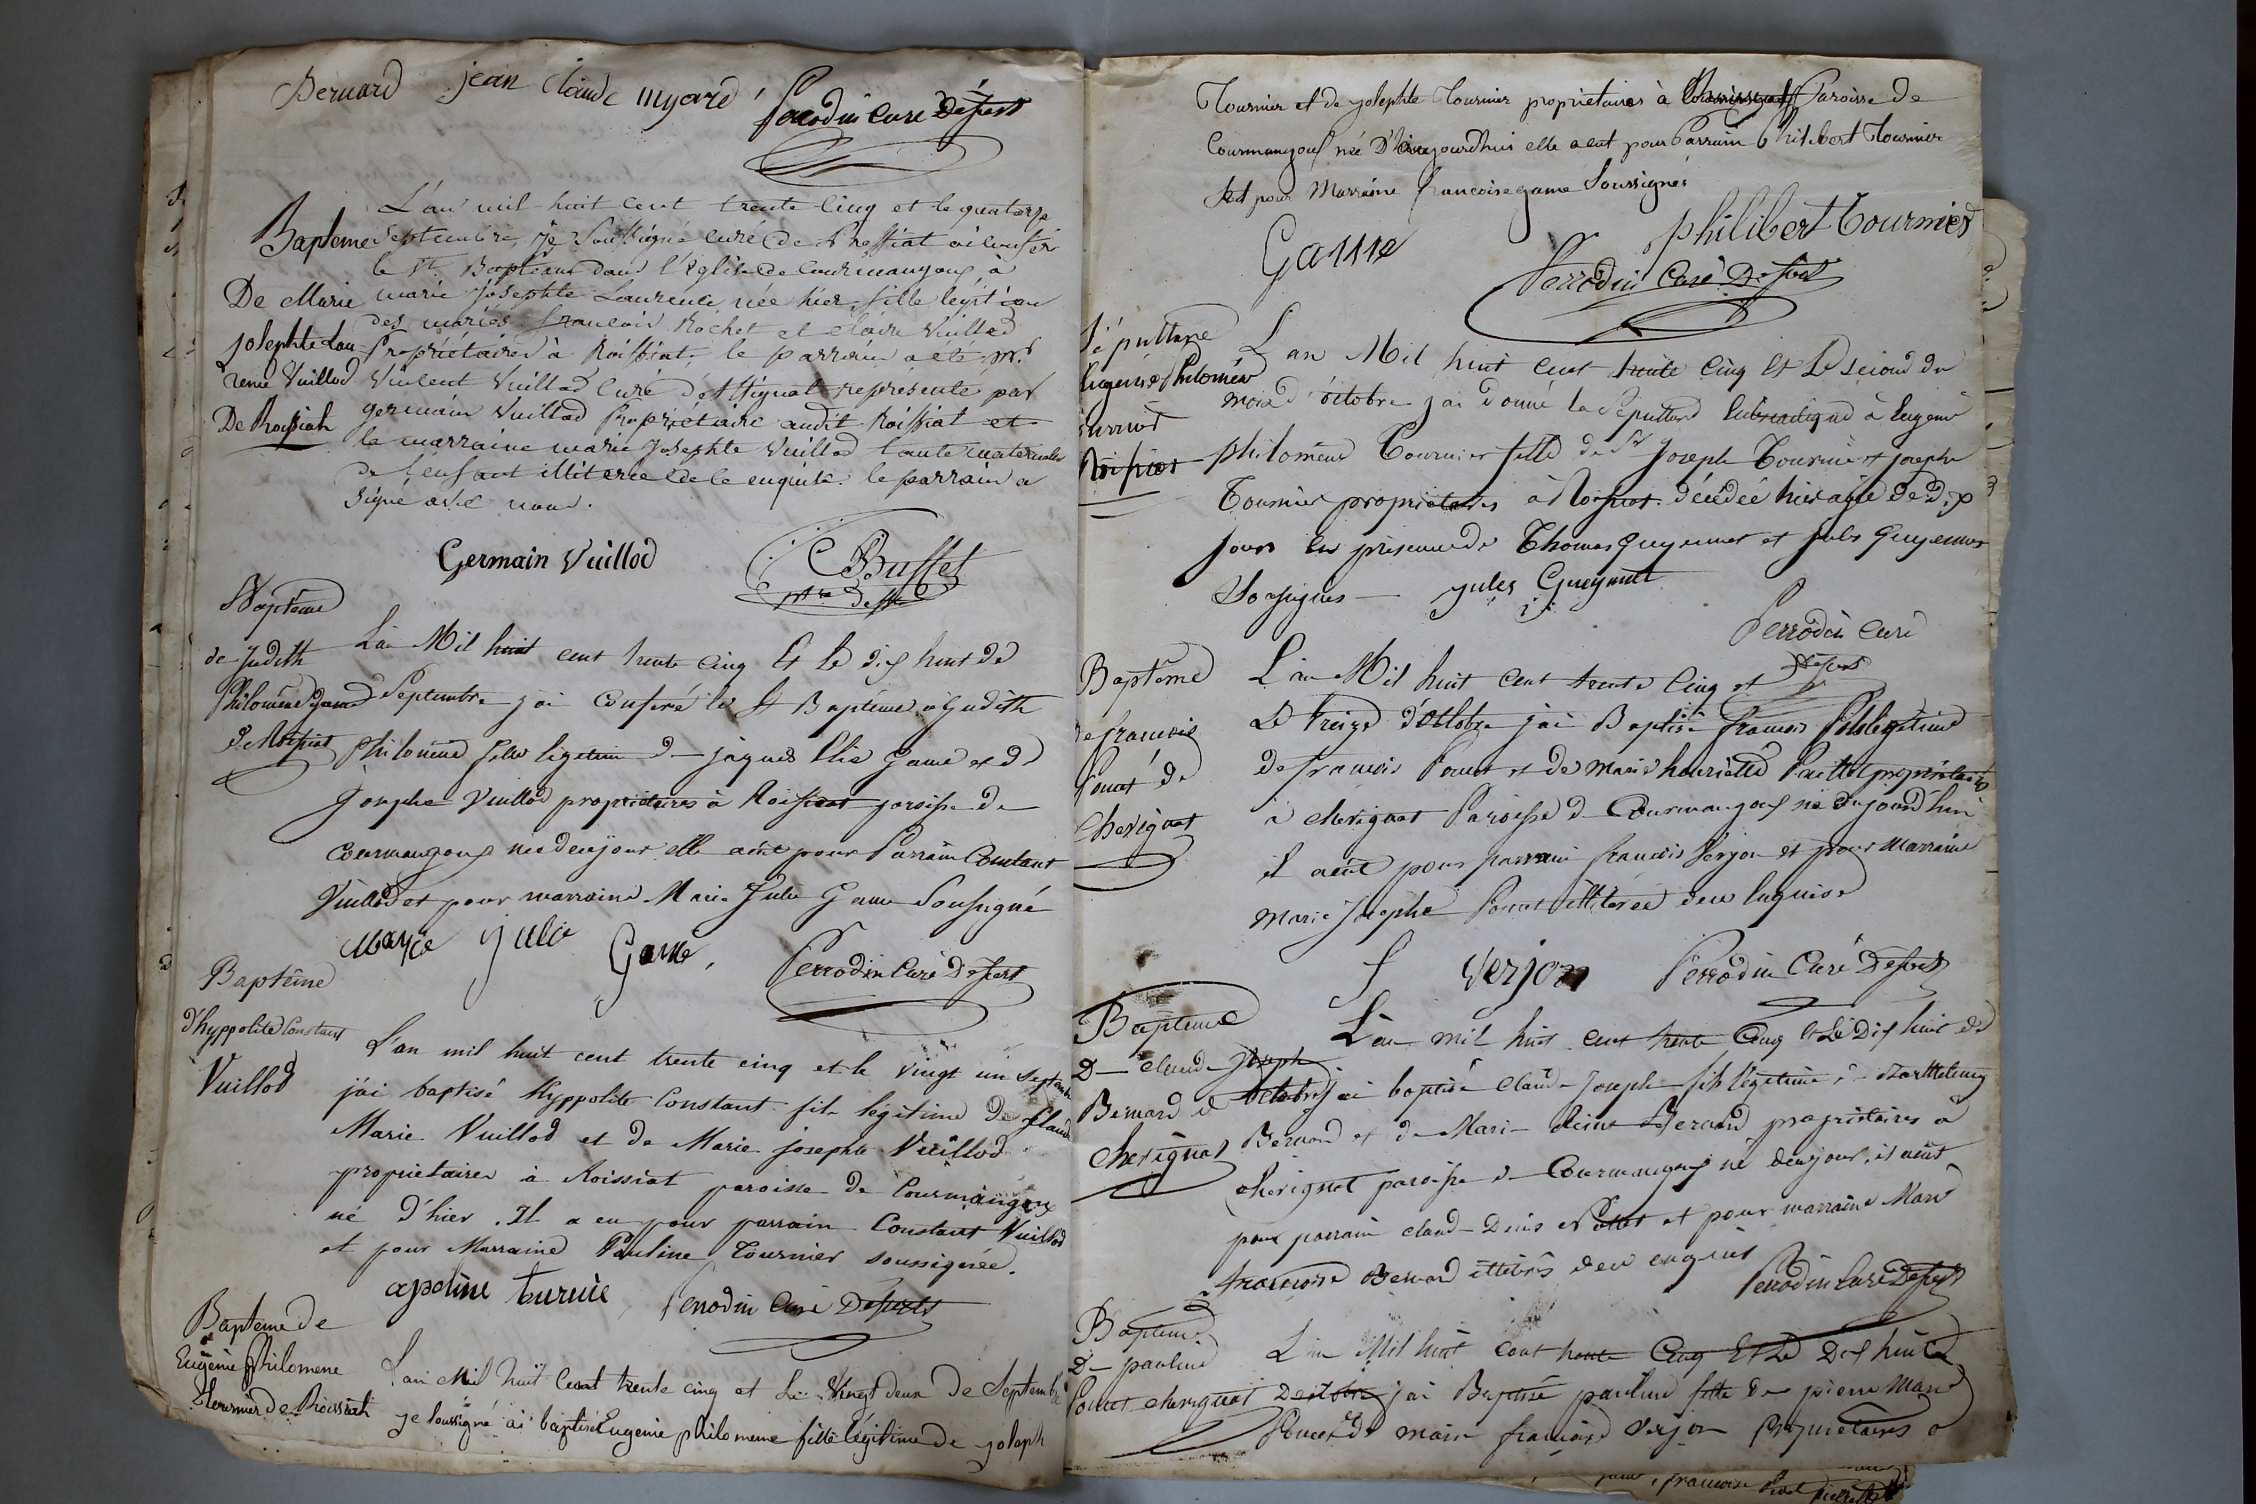 Bernard jean Claude myard Perrodin Curé Desserv
L'an mil huit cent trente cinq et le quatorze
Bapteme septembre, je soussigné curé de Pressiat ai conféré
le St. Bapteme dans l'église de Courmangoux à
De Marie marie Josephte Laurence née hier, fille légitime
des mariés francois Rochet et Claire Vuillod
josephte Lau propriétaires à Roissiat, le parrain a été mr.
rence Vuillod Vincent Vuillod curé d'attignat représenté par
De Roissiat germain Vuillod Propriétaire audit Roissiat et
la marraine marie Josephte Vuillod tante maternelle
de l'enfant illiterée de ce enquise. le parrain a
signé avec nous.
Germain Vuillod Buffet
Baptême
de Judith L'an Mil huit cent trente cinq Et le dix huit de
Philomène game Septembre j'ai conferé le St Baptême à Judith
de Roissiat philomene fille legitime de jaques Elie game et de
josephe Vuillod proprietaires à Roissiat paroisse de
courmangoux née de ce jour elle a eut pour Parrain Constant
Vuillod et pour marraine Marie Julie Game Soussigné
marie julie Game, Perrodin Curé Desserv
Baptême
d'hyppolite Constant L'an mil huit cent trente cinq et le vingt un septembre
Vuillod j'ai baptisé hyppolite Constant fils légitime de Claude
Marie Vuillod et de Marie josephte Vuillod
propriétaires à Roissiat paroisse de Courmangoux
né d'hier. Il a eu pour parrain Constant Vuillod
et pour Marraine Pauline Tournier soussignée.
apoline turnie, Perrodin Curé Desserv
Bapteme de
Eugénie Philomene L'an Mil huit Cent trente cinq et Le Vingt deux de Septembre
Tournier de Roissiat je soussigné ai baptisé Eugenie philomene fille légitime de joseph
Tournier et de josephte Tournier propriétaires à Paroisse de
Courmangoux née D'aujourdhui elle a eut pour Parrain Philibert Tournier
Et pour Marraine francoise game Soussignés
Game philibert Tournier
Perrodin Curé Desserv
Sépulture L'an Mil huit cent trente Cinq Et Le second du
Eugenie Philomène mois d'octobre j'ai donné la Sépulture à Eugenie
Tournier philomène Tournier fille de Sr Joseph Tournier et josephe
Roissiat Tournier propriétaires à Roissiat décédée hier agée de dix
jours en presence de Thomas Gueyennet et jules Gueyennet
Soussignés jules Gueyennet
Perrodin Curé
Desserv
Baptême L'an Mil huit cent trente Cinq et
Le treize d'octobre j'ai Baptisé francois fils legitime
de francois de francois Pouat et de marie henriette Paillet propriétaires
Pouat de à cherignat Paroisse de Courmangoux né d'aujourd'hui
Cherignat il a eut pour parrain francois Verjon et pour marraine
marie josephe Pouat illitérée de ce enquise
f verjon Perrodin Curé Desserv
Bapteme L'an mil huit cent trente Cinq et Le Dix huit de
De claude joseph octobre j'ai baptisé claude Joseph fils légitime de Barthelemy
Bernard de Bernard et de Marie Bernard propriétaires à
cherignat cherignat paroisse de Courmangoux né de ce jour, il a eut
pour parrain claude Denis Pouat et pour marraine Marie
francoise Bernard illitérés de ce enquis Perrodin Curé Desserv
Bapteme L'an Mil huit cent trente Cinq Et Le Dix huit
De pauline
Pouat cherignat D'octobre j'ai Baptisé pauline fille de pierre Marie
Pouat et de marie francoise Verjon Propriétaires à